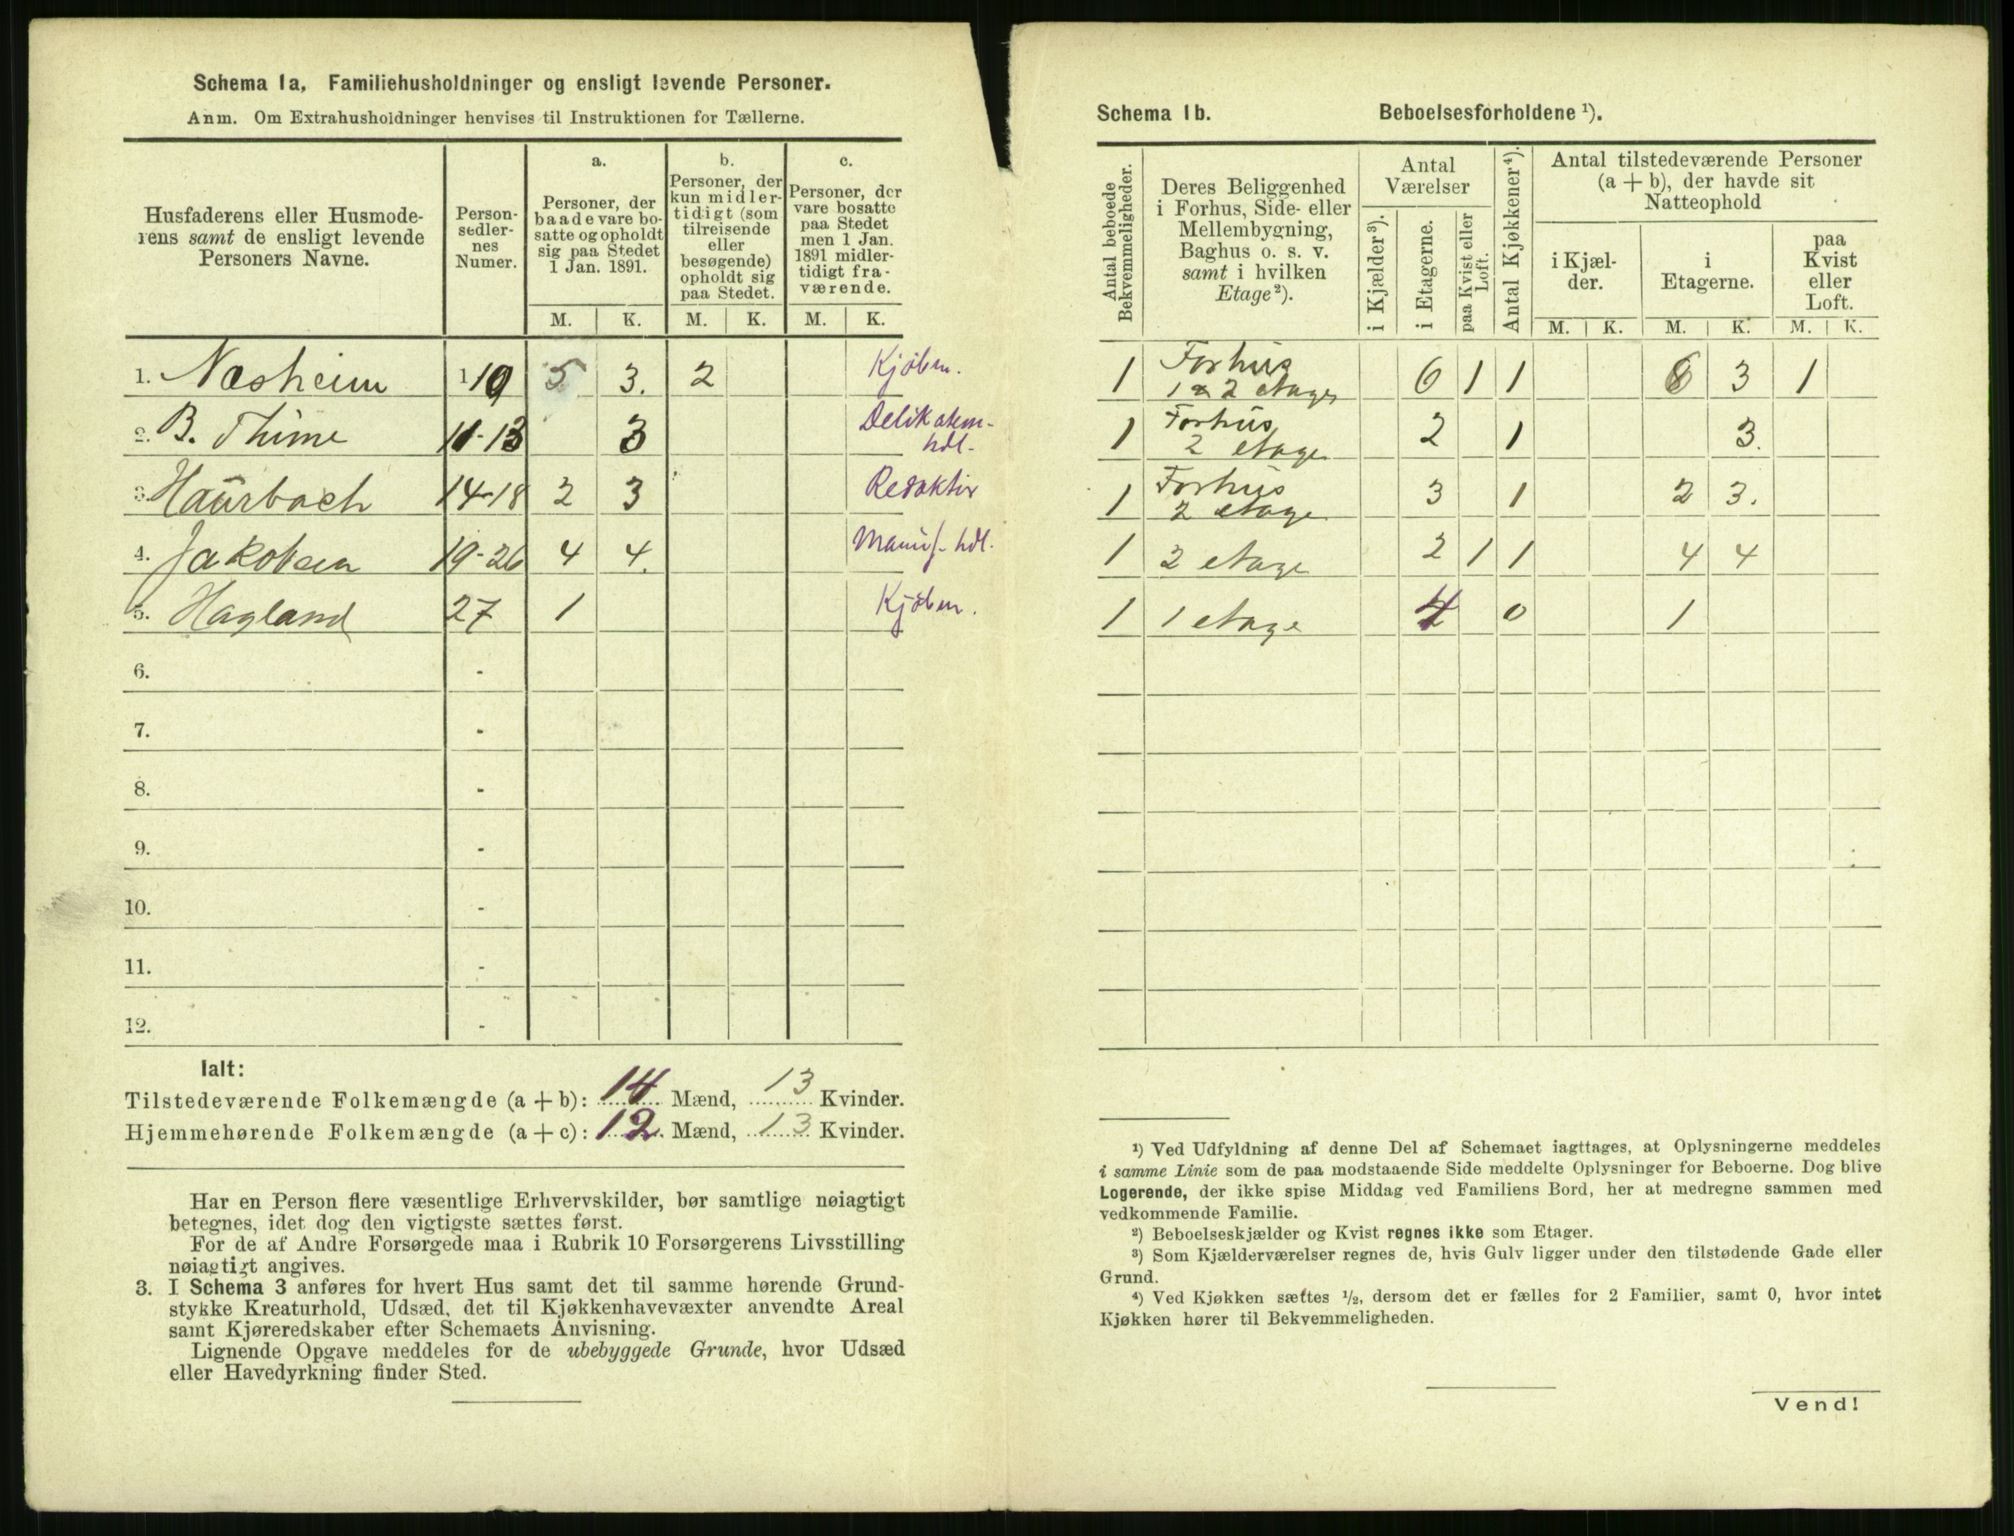 Schema 1a. Familiehusholdninger og ensligt levende Personer.
Anm. Om Extrahusholdninger henvises til Instruktionen for Tællerne.
Husfaderens eller Husmoderens samt de ensligt levende Personers Navne.
Personsedlernes Numer.
a.
Personer, der baade vare bosatte og opholdt sig paa Stedet 1 Jan. 1891.
b.
Personer, der kun midlertidigt (som tilreisende eller besøgende) opholdt sig paa Stedet.
c.
Personer, der vare bosatte paa Stedet men 1 Jan. 1891 midlertidigt fraværende.
M. K. M. K. M. K.
1. Næsheim 1 10 5 3. 2 Kjøbm.
2. B. Thime 11-13 3 Delikatessehdl.
3. Haurbach 14-18 2 3 Redaktør
4. Jakobsen 19-26 4 4. Manuf. hdl.
5. Hagland 27 1 Kjøbm.
6. -
7. -
8. -
9. -
10. -
11. -
12. -
Ialt:
Tilstedeværende Folkemængde (a + b): 14 Mænd, 13 Kvinder.
Hjemmehørende Folkemængde (a + c): 12 Mænd, 13 Kvinder.
Har en Person flere væsentlige Erhvervskilder, bør samtlige nøiagtigt
betegnes, idet dog den vigtigste sættes først.
For de af Andre Forsørgede maa i Rubrik 10 Forsørgerens Livsstilling
nøiagtigt angives.
3. I Schema 3 anføres for hvert Hus samt det til samme hørende Grund-
stykke Kreaturhold, Udsæd, det til Kjøkkenhavevæxter anvendte Areal
samt Kjøreredskaber efter Schemaets Anvisning.
Lignende Opgave meddeles for de ubebyggede Grunde, hvor Udsæd
eller Havedyrkning finder Sted.
Schema 1b. Beboelsesforholdene ¹).
Antal beboede Bekvemmeligheder.
Deres Beliggenhed i Forhus, Side- eller Mellembygning, Baghus o. s. v. samt i hvilken Etage ²).
Antal Værelser
i Kjælder ³).
i Etagerne.
paa Kvist eller Loft.
Antal Kjøkkener ⁴).
Antal tilstedeværende Personer (a + b), der havde sit Natteophold
i Kjælder.
i Etagerne.
paa Kvist eller Loft.
M. K. M. K. M. K.
1 Forhus 1 & 2 etage 6 1 1 6 3 1
1 Forhus 2 etage 2 1 3.
1 Forhus 2 etage 3 1 2 3.
1 2 etage 2 1 1 4 4
1 1 etage 4 0 1
¹) Ved Udfyldning af denne Del af Schemaet iagttages, at Oplysningerne meddeles
i samme Linie som de paa modstaaende Side meddelte Oplysninger for Beboerne. Dog blive
Logerende, der ikke spise Middag ved Familiens Bord, her at medregne sammen med
vedkommende Familie.
²) Beboelseskjælder og Kvist regnes ikke som Etager.
³) Som Kjælderværelser regnes de, hvis Gulv ligger under den tilstødende Gade eller
Grund.
⁴) Ved Kjøkken sættes ½, dersom det er fælles for 2 Familier, samt 0, hvor intet
Kjøkken hører til Bekvemmeligheden.
Vend!